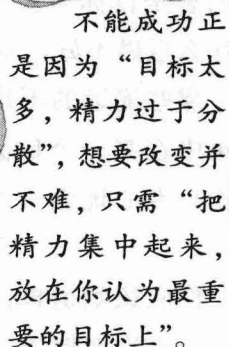 不能成功正
是因为“目标太
多，精力过于分
散”，想要改变并
不难，只需“把
精力集中起来，
放在你认为最重
要的目标上”。